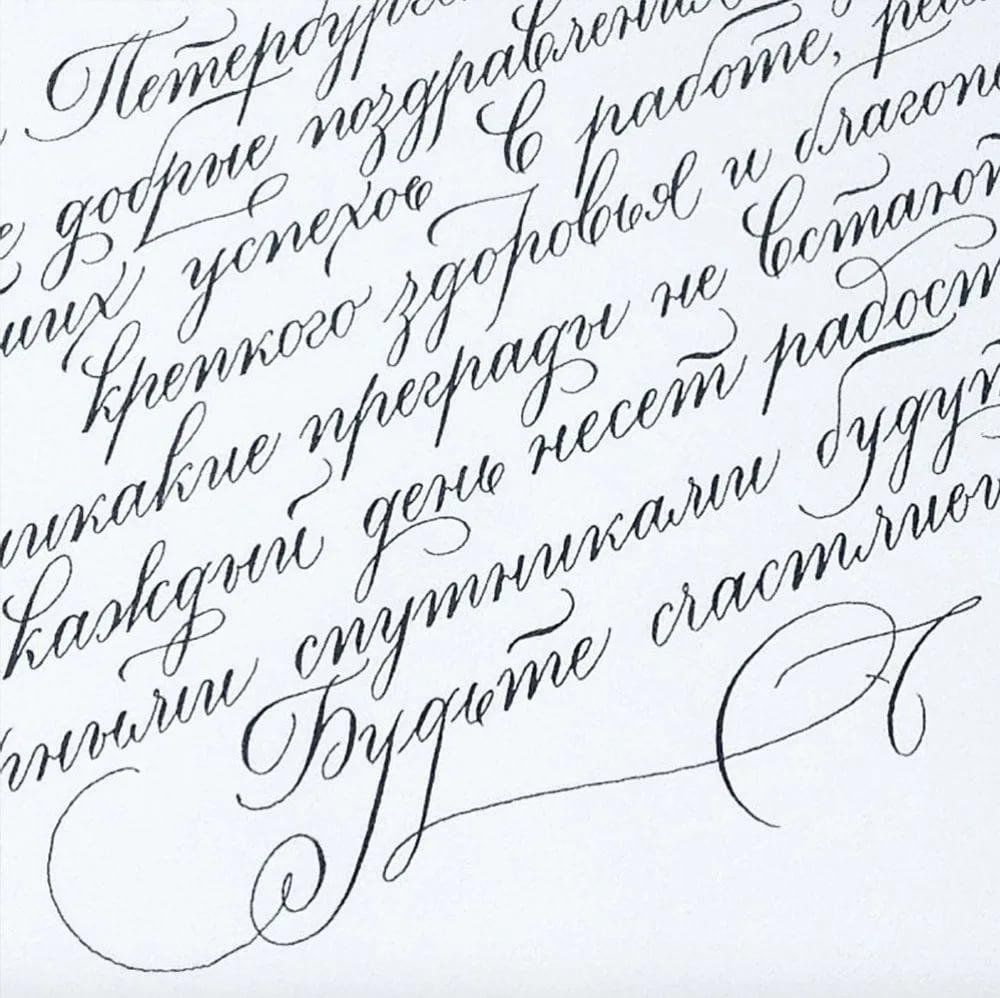 Петербург
добрые поздравления
успехов в работе,
крепкого здоровья и благопо
никакие преграды не встают
каждый день несет радост
ными спутниками будут
Будьте счастливы